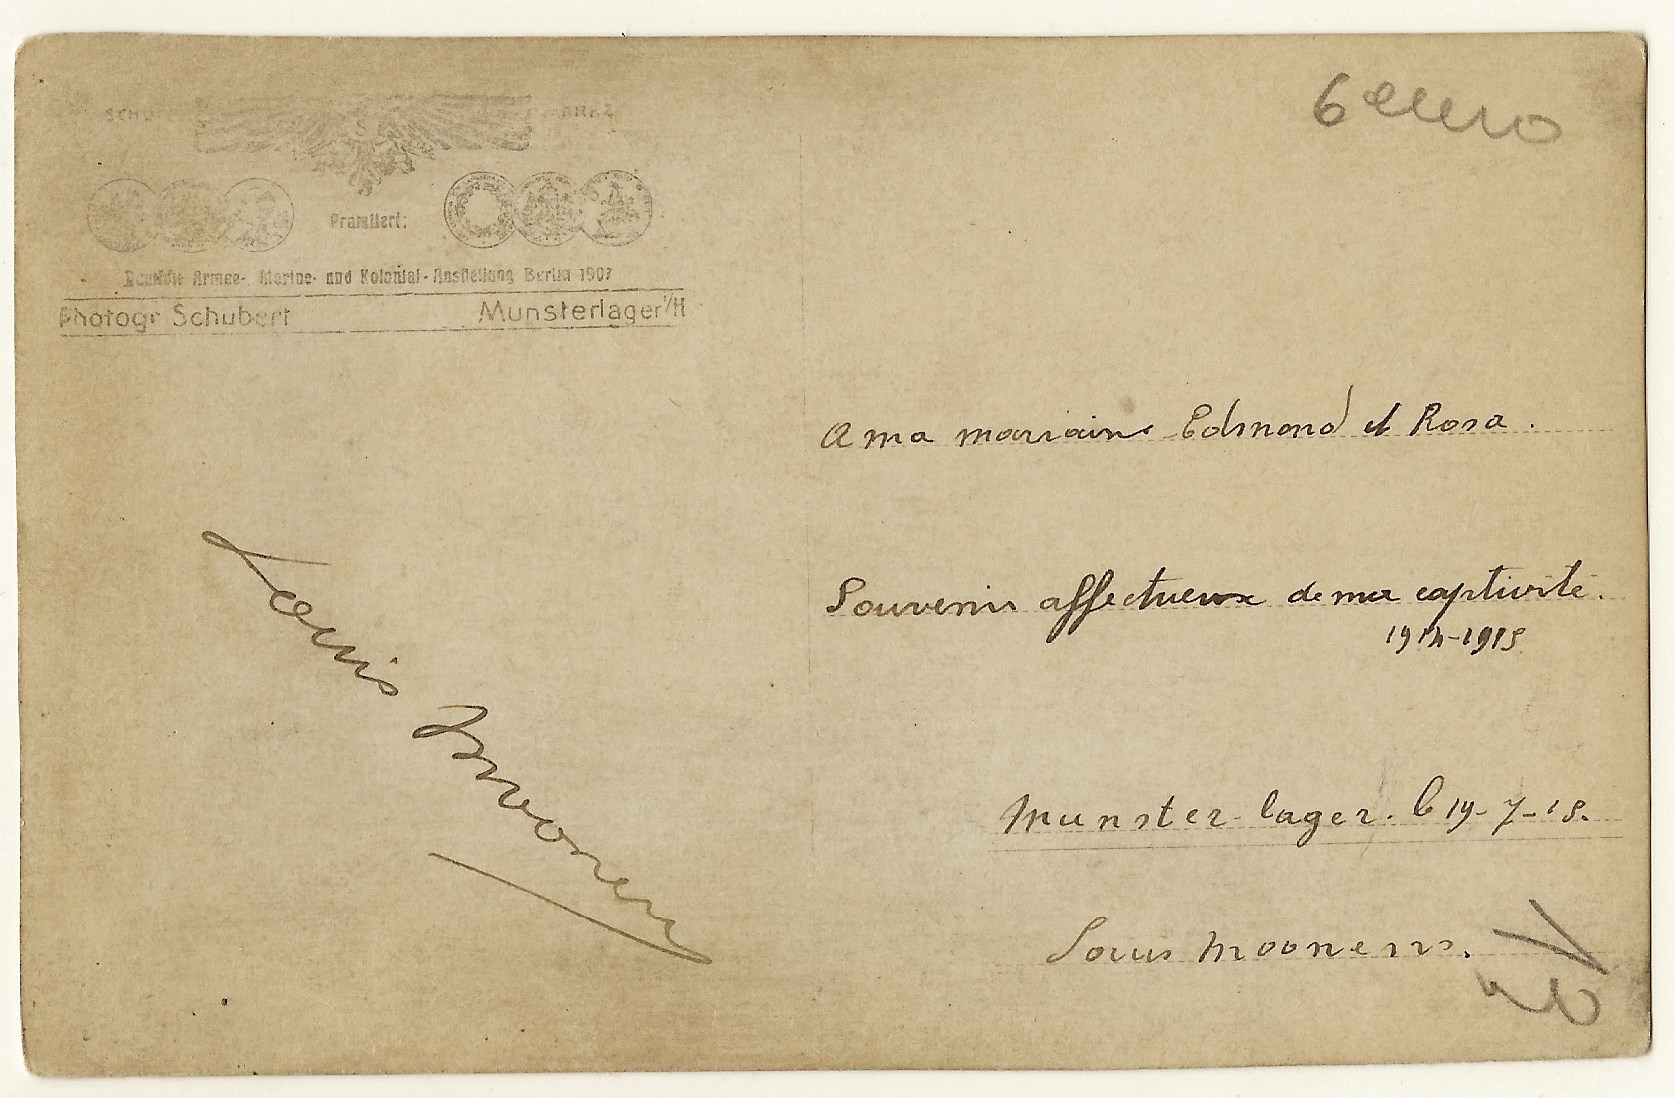 Prämiiert:
Deutsche Armee-, Marine- und Kolonial-Ausstellung Berlin 1907
Photogr Schubert Munsterlager i/H
6 euro
A ma marraine Edmond et Rosa.
Souvenir affectueux de ma captivité.
1914-1915
Munster-lager. le 19-7-15.
Louis Moonens.
Louis Moonens
13